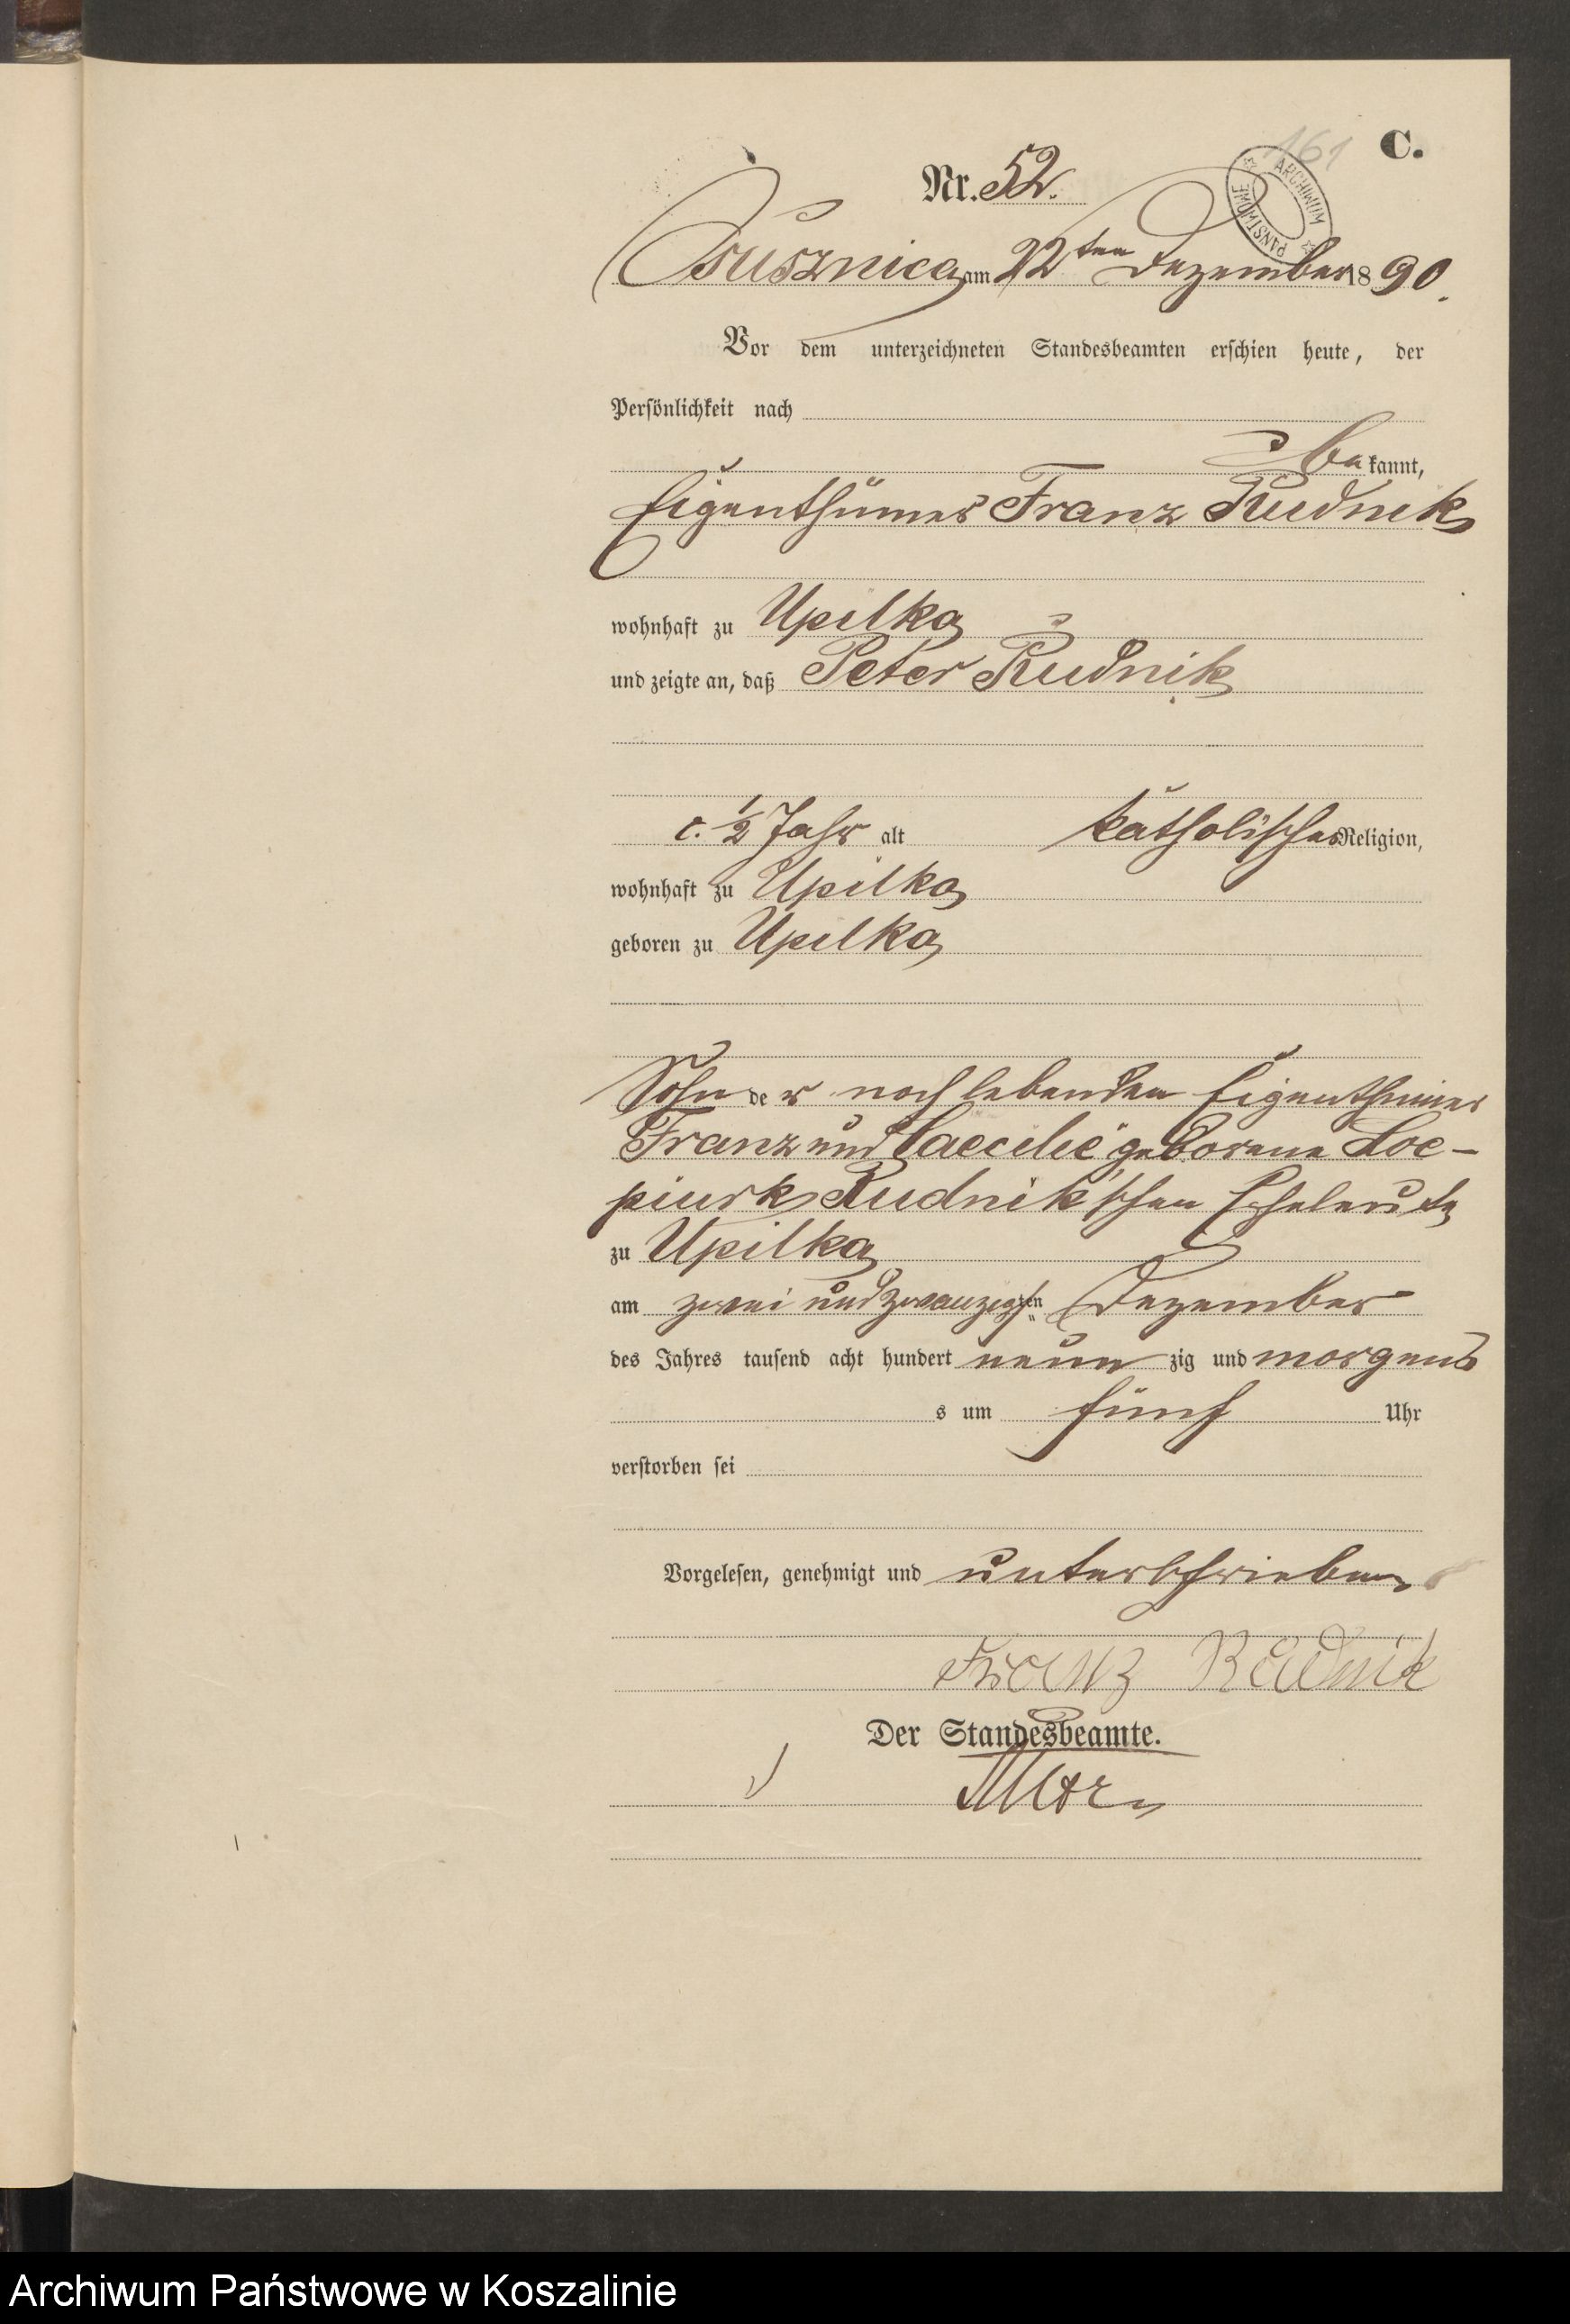 161
C.
Nr. 52.
ARCHIWUM PAŃSTWOWE
am 22ten Dezember 1890.
Vor dem unterzeichneten Standesbeamten erschien heute, der
Persönlichkeit nach
bekannt,
Eigenthümer Franz Rudnik
wohnhaft zu Upilka
und zeigte an, daß Peter Rudnik
c. 1/2 Jahr alt katholischer Religion,
wohnhaft zu Upilka
geboren zu Upilka
Sohn der noch lebenden Eigenthümer
Franz und Caecilie geborene
Rudnik'schen Eheleute
zu Upilka
am zwei und zwanzigsten Dezember
des Jahres tausend acht hundert neun zig und morgens
s um fünf Uhr
verstorben sei
Vorgelesen, genehmigt und unterschrieben
Franz Rudnik
Der Standesbeamte.
Archiwum Państwowe w Koszalinie